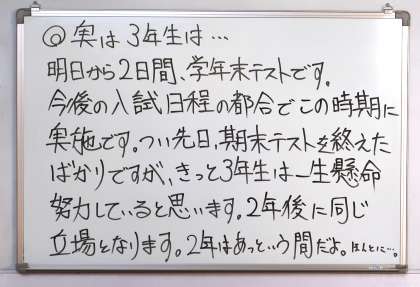 ◎実は3年生は…
明日から2日間、学年末テストです。
今後の入試日程の都合でこの時期に
実施です。つい先日、期末テストを終えた
ばかりですが、きっと3年生は一生懸命
努力していると思います。2年後に同じ
立場となります。2年はあっという間だよ。ほんとに…。